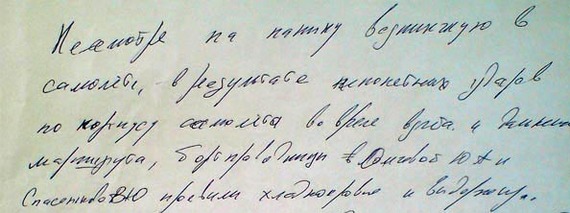 Несмотря на панику возникшую в
самолёте, в результате непонятных ударов
по корпусу самолёта во время взлёта и
маршрута, бортпроводницы Ю А и
Спасенкова ВЮ проявили хладнокровие и выдержку.